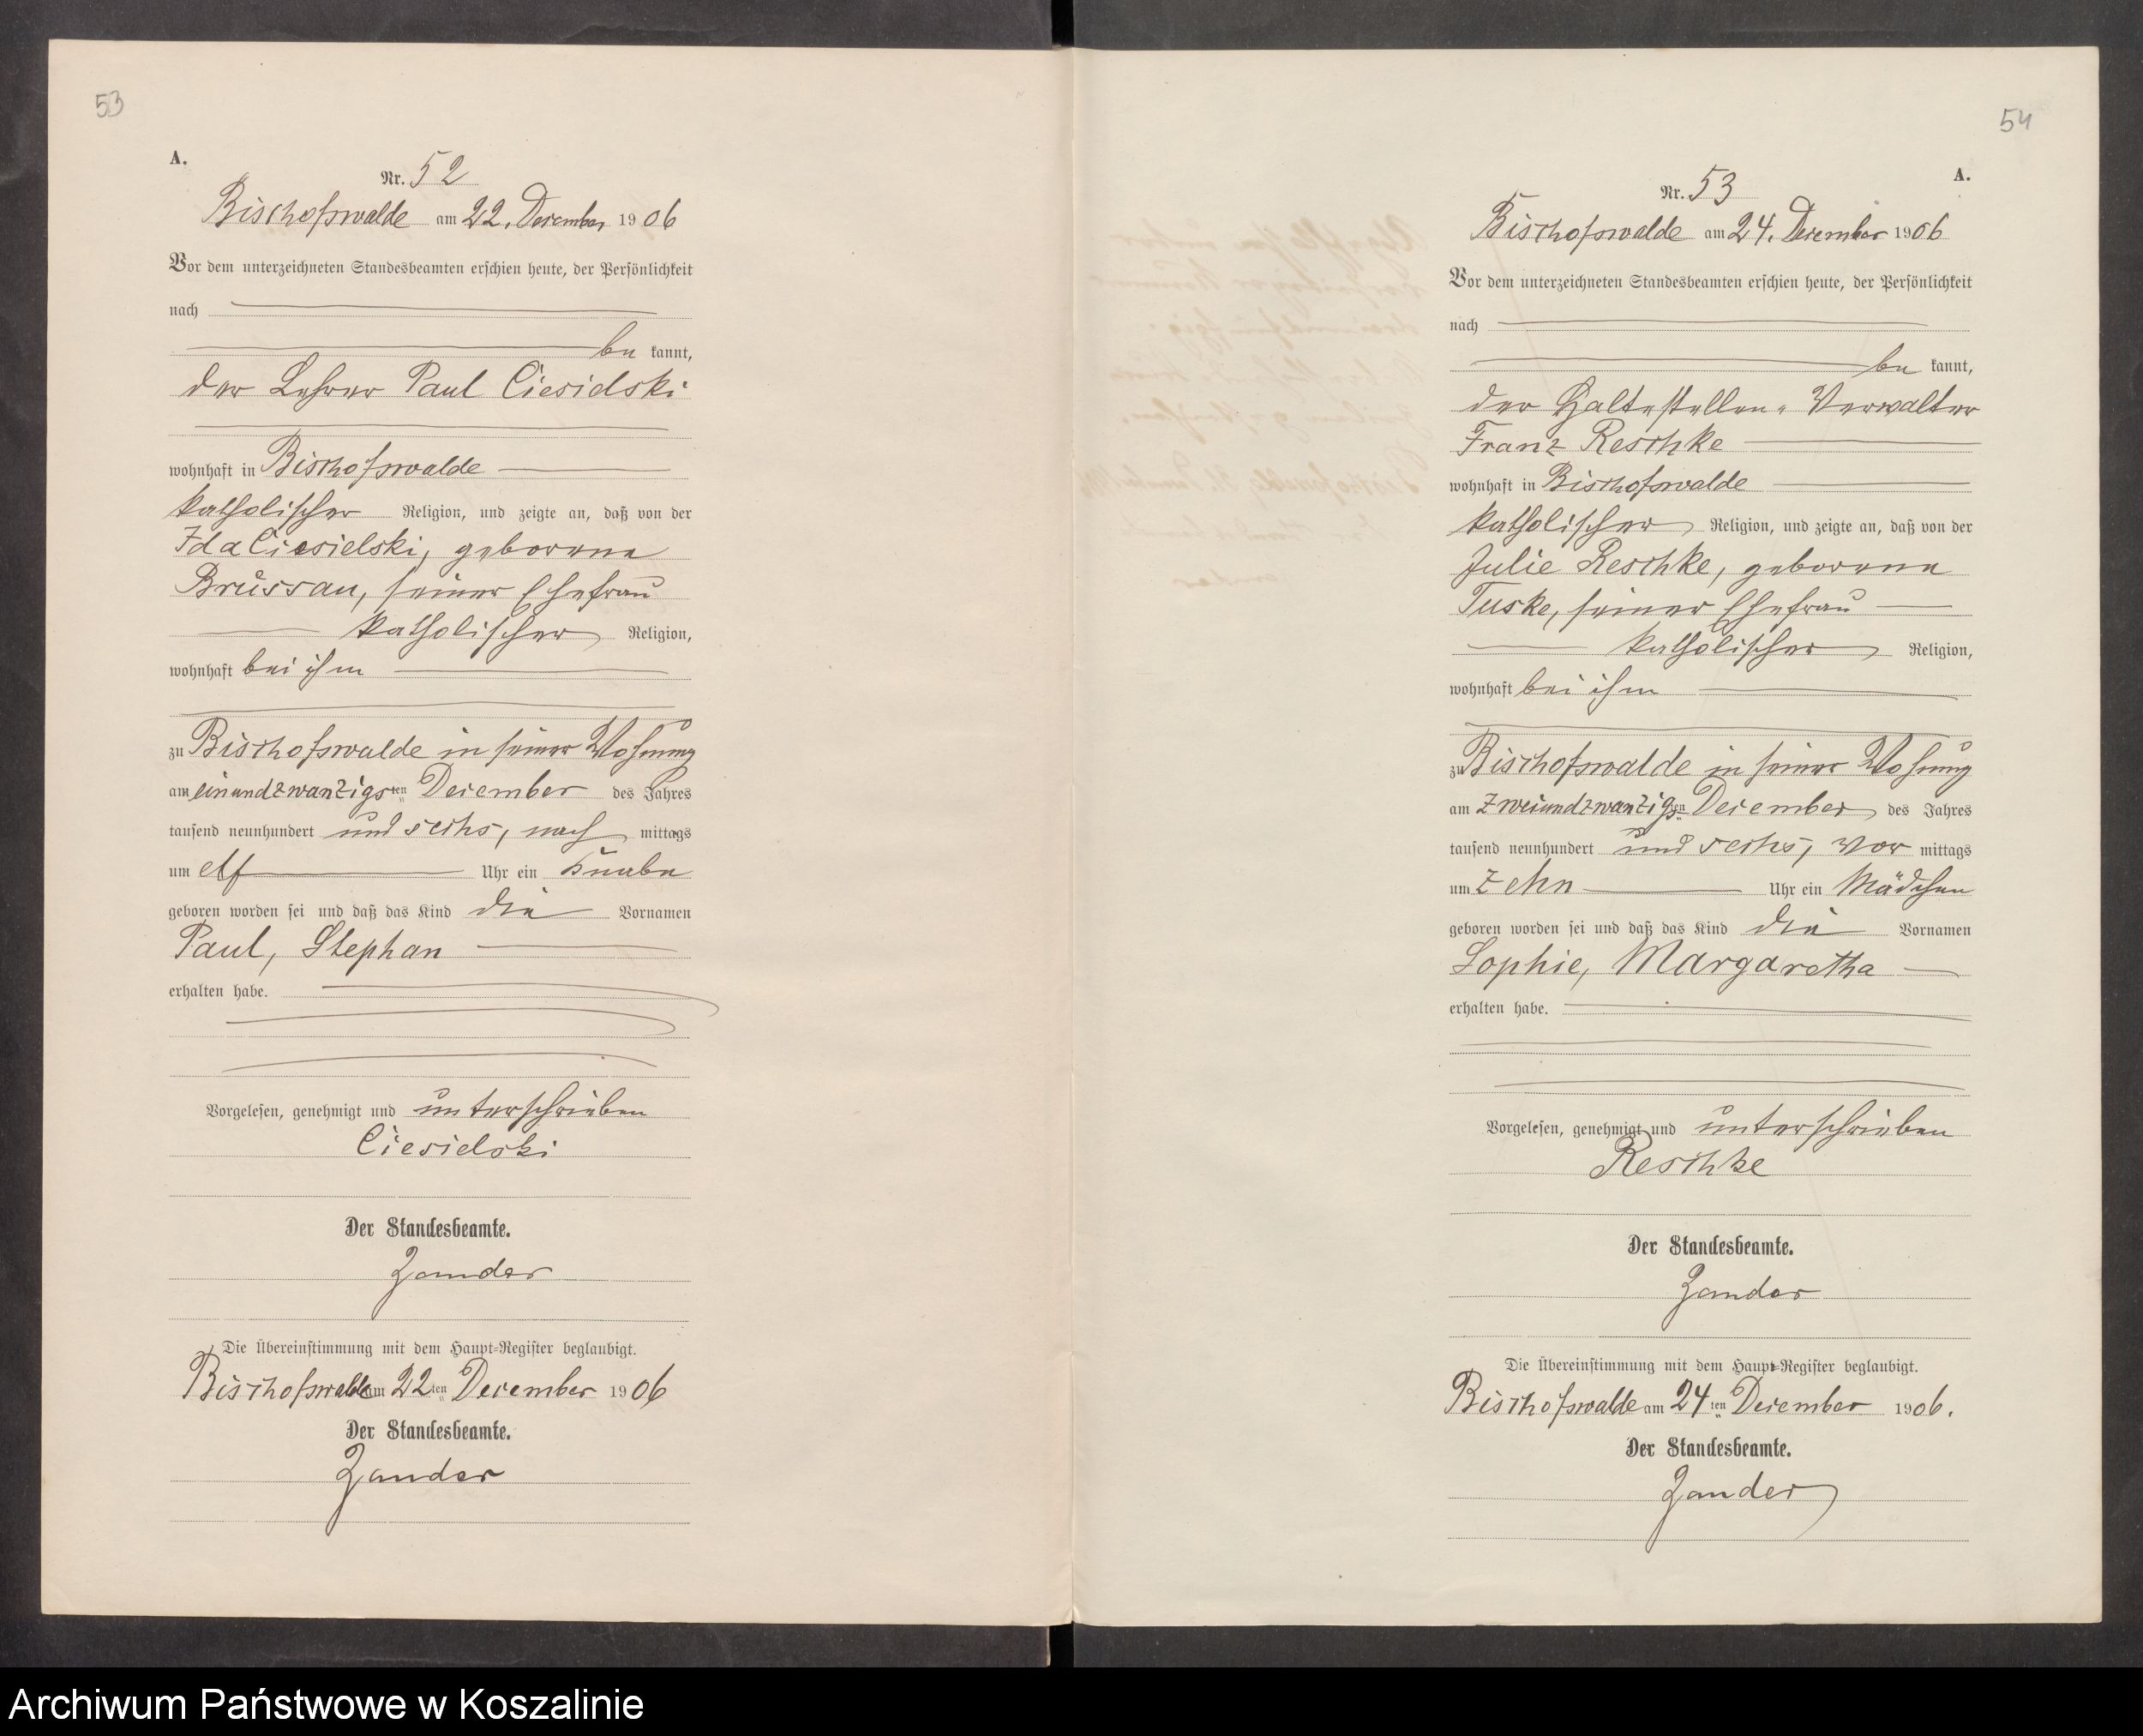 53
A.
Nr. 52
Bischofswalde am 22. December 1906
Vor dem unterzeichneten Standesbeamten erschien heute, der Persönlichkeit
nach
be kannt,
der Lehrer Paul Ciesielski
wohnhaft in Bischofswalde
katholischer Religion, und zeigte an, daß von der
Ida Ciesielski, geborene
Brüssau, seiner Ehefrau
katholischer Religion,
wohnhaft bei ihm
zu Bischofswalde in seiner Wohnung
am einundzwanzigsten December des Jahres
tausend neunhundert und sechs, nach mittags
um elf Uhr ein Knabe
geboren worden sei und daß das Kind die Vornamen
Paul, Stephan
erhalten habe.
Vorgelesen, genehmigt und unterschrieben
Ciesielski
Der Standesbeamte.
Zander
Die Übereinstimmung mit dem Haupt-Register beglaubigt.
Bischofswalde am 22ten December 1906
Der Standesbeamte.
Zander
54
A.
Nr. 53
Bischofswalde am 24. December 1906
Vor dem unterzeichneten Standesbeamten erschien heute, der Persönlichkeit
nach
be kannt,
der Haltestellen-Verwalter
Franz Reschke
wohnhaft in Bischofswalde
katholischer Religion, und zeigte an, daß von der
Julie Reschke, geborene
Tuske, seiner Ehefrau
katholischer Religion,
wohnhaft bei ihm
zu Bischofswalde in seiner Wohnung
am zweiundzwanzigsten December des Jahres
tausend neunhundert und sechs, Vor mittags
um zehn Uhr ein Mädchen
geboren worden sei und daß das Kind die Vornamen
Sophie, Margaretha
erhalten habe.
Vorgelesen, genehmigt und unterschrieben
Reschke
Der Standesbeamte.
Zander
Die Übereinstimmung mit dem Haupt-Register beglaubigt.
Bischofswalde am 24ten December 1906.
Der Standesbeamte.
Zander
Archiwum Państwowe w Koszalinie